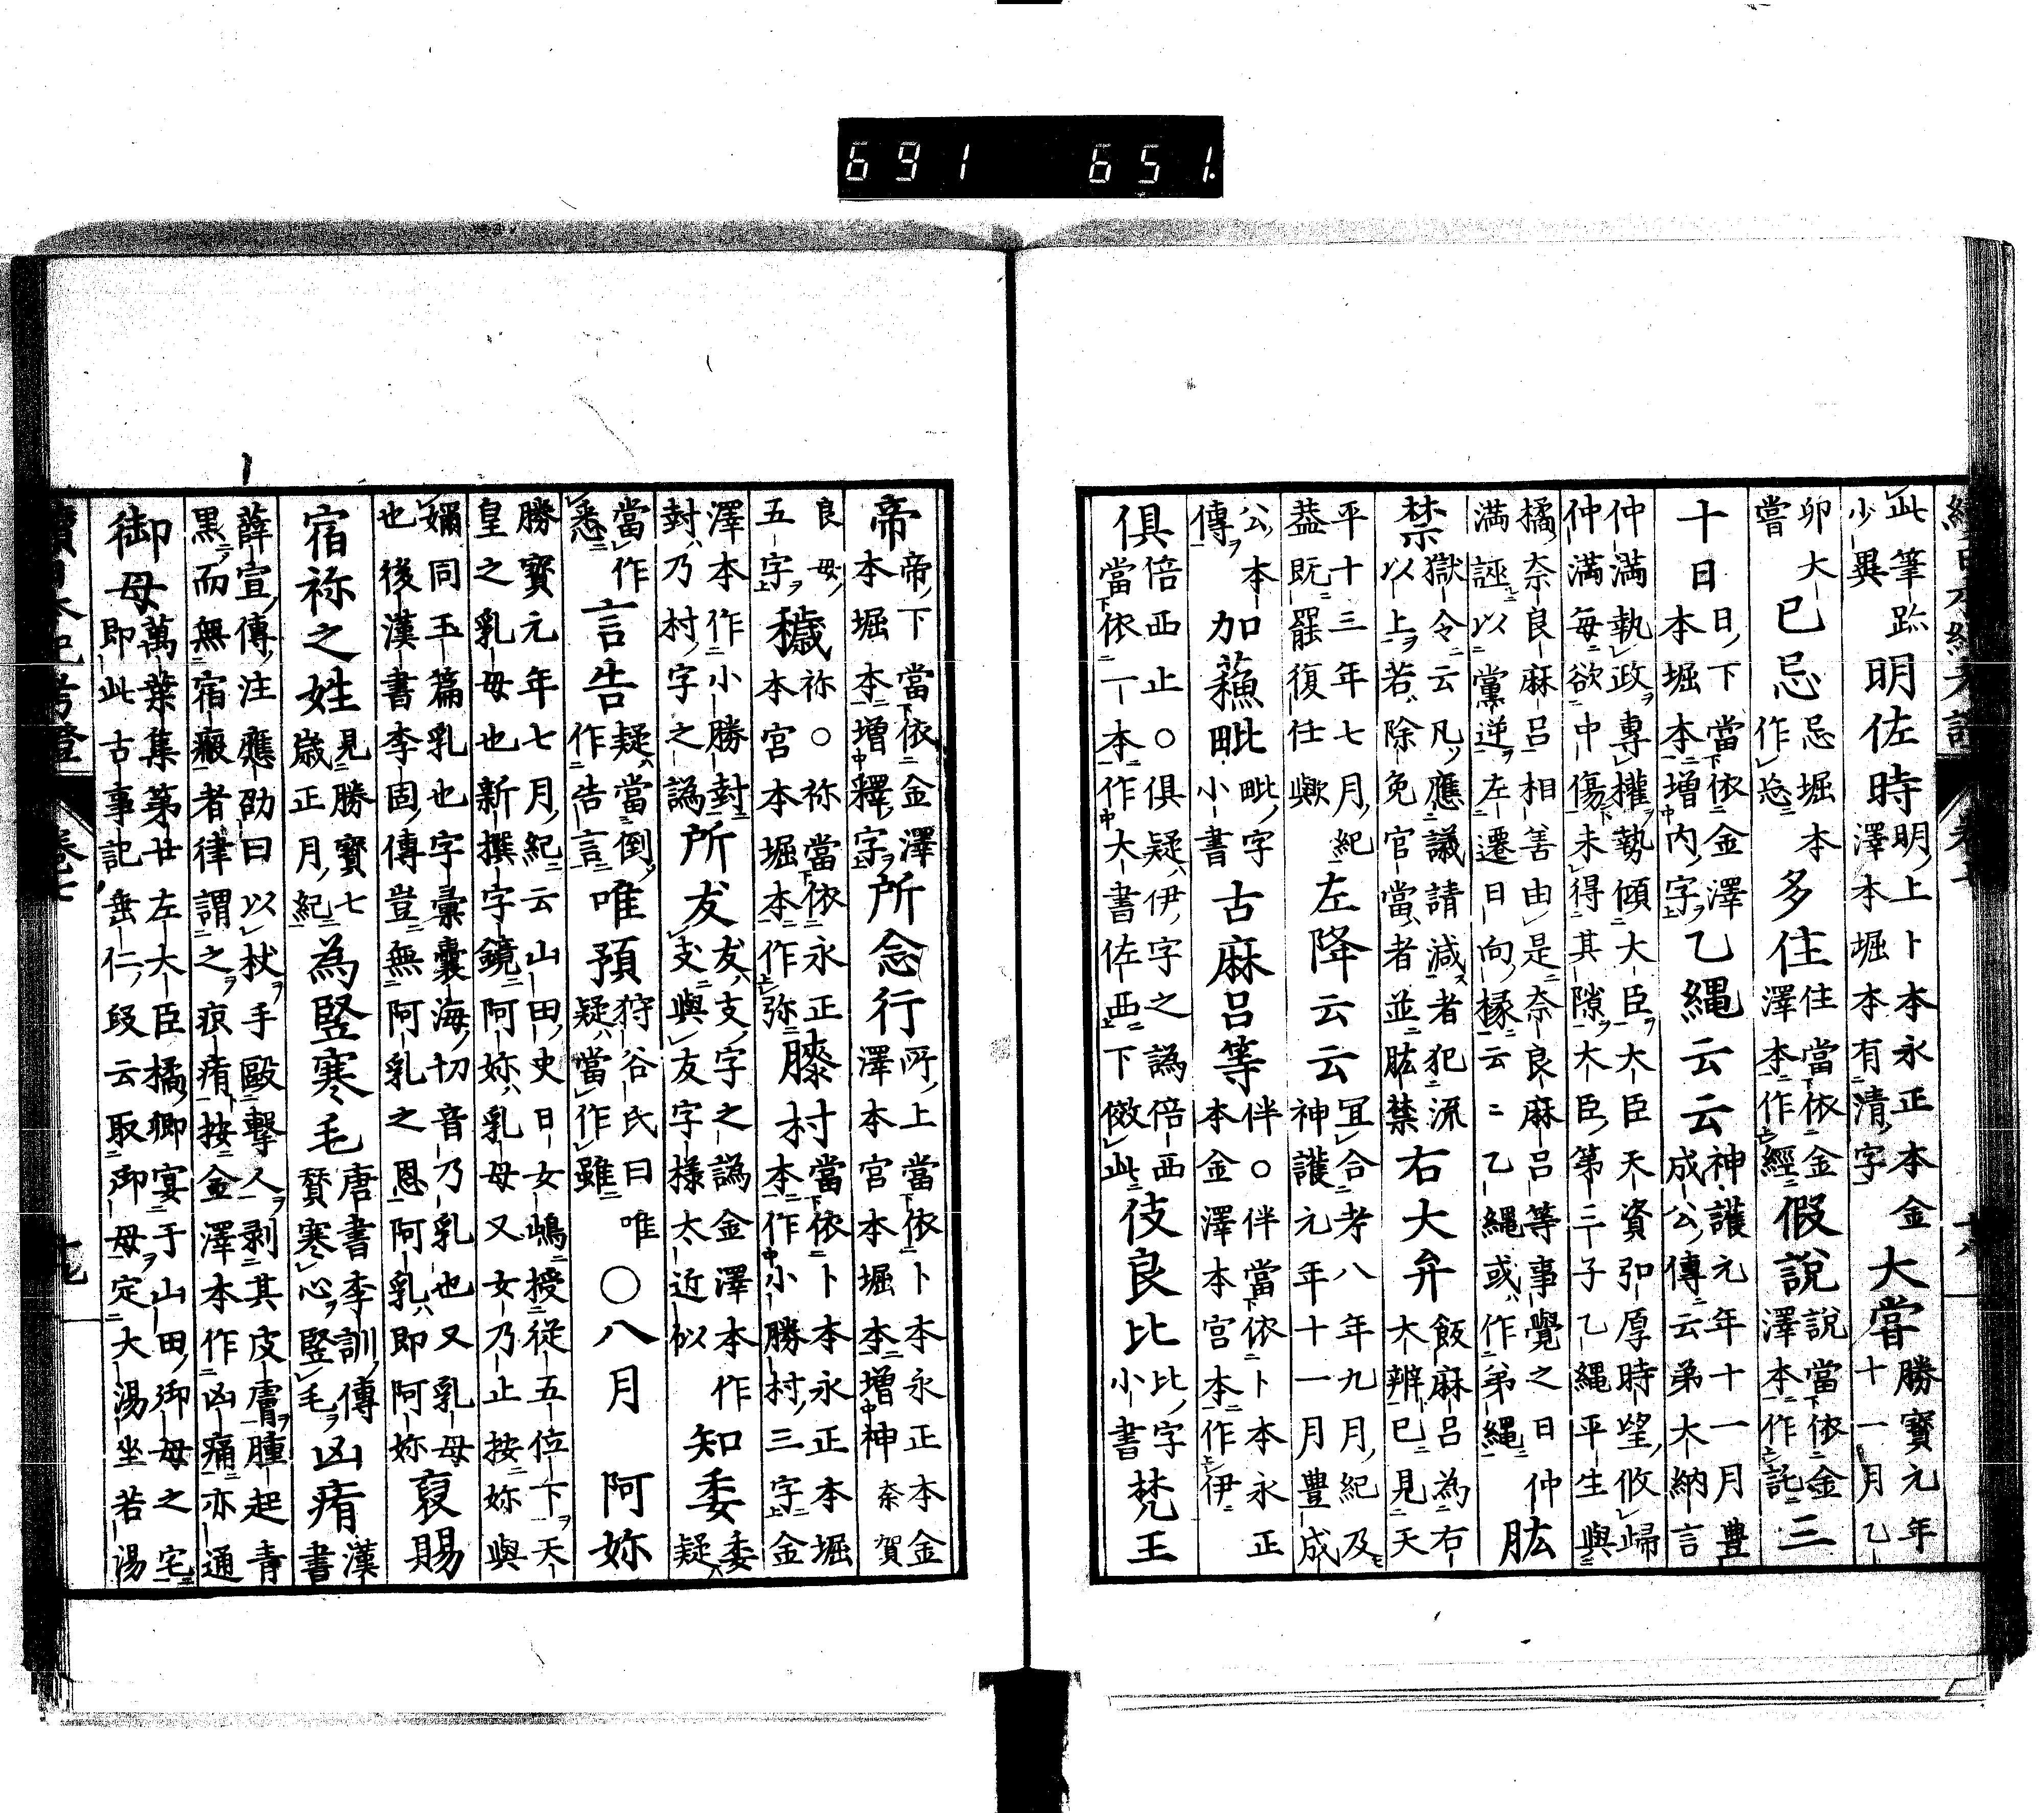 691 651
續日本紀考證 卷七 十六
此筆跡少異 明佐時 明上卜本永正本金澤本堀本有清字 大嘗 勝寶元年十一月乙
卯大嘗 已忌 忌堀本作忘 多住 住當依金澤本作經 假說 說當依金澤本作託 三
十日 日下當依金澤本堀本增內字 乙繩云云 神護元年十一月豐成公傳云弟大納言
仲滿執政專權勢傾大臣大臣天資弘厚時望攸歸仲滿每欲中傷未得其隙大臣第三子乙繩平生與
橘奈良麻呂相善由是奈良麻呂等事覺之日仲滿誣以黨逆左遷日向掾云云乙繩或作弟繩 肱
禁 獄令云凡應議請減者犯流以上若除免官當者並肱禁 右大弁 飯麻呂為右大辨已見天
平十三年七月紀蓋既罷復任歟 左降云云 宜合考八年九月紀及神護元年十一月豐成
公本傳 加蘓毗 毗字小書 古麻呂等 伴〇伴當依卜本永正本金澤本宮本作伊
俱 倍西止〇俱疑伊字之譌倍西當依一本作大書佐西下倣此 伎良比 比字小書 梵王
帝 帝下當依金澤本堀本增釋字 所念行 所上當依卜本永正本金澤本宮本堀本增神 奈賀
良母五字 穢 祢〇祢當依永正本宮本堀本作弥 膝村 當依卜本永正本堀本作小勝村三字金
澤本作小勝封封乃村字之譌 所犮 犮支字之譌金澤本作支與友字樣太近似 知委 委疑
當作悉 言告 疑當倒作告言 唯預 狩谷氏曰唯疑當作雖 〇八月 阿妳
勝寶元年七月紀云山田史日女嶋授從五位下天皇之乳母也新撰字鏡阿妳乳母又女乃止按妳與
嬭同玉篇乳也字彙囊海切音乃乳也又乳母也後漢書李固傳豈無阿乳之恩阿乳即阿妳 裒賜
宿祢之姓 見勝寶七歲正月紀 為竪寒毛 唐書李訓傳贊寒心竪毛 凶痏 漢書
薛宣傳注應劭曰以杖手毆擊人剥其皮膚腫起青黑而無宿瘢者律謂之疻痏按金澤本作凶痛亦通
御母 萬葉集第廿左大臣橘卿宴于山田御母之宅即此古事記垂仁段云取御母定大湯坐若湯
續日本紀考證 卷七 十七